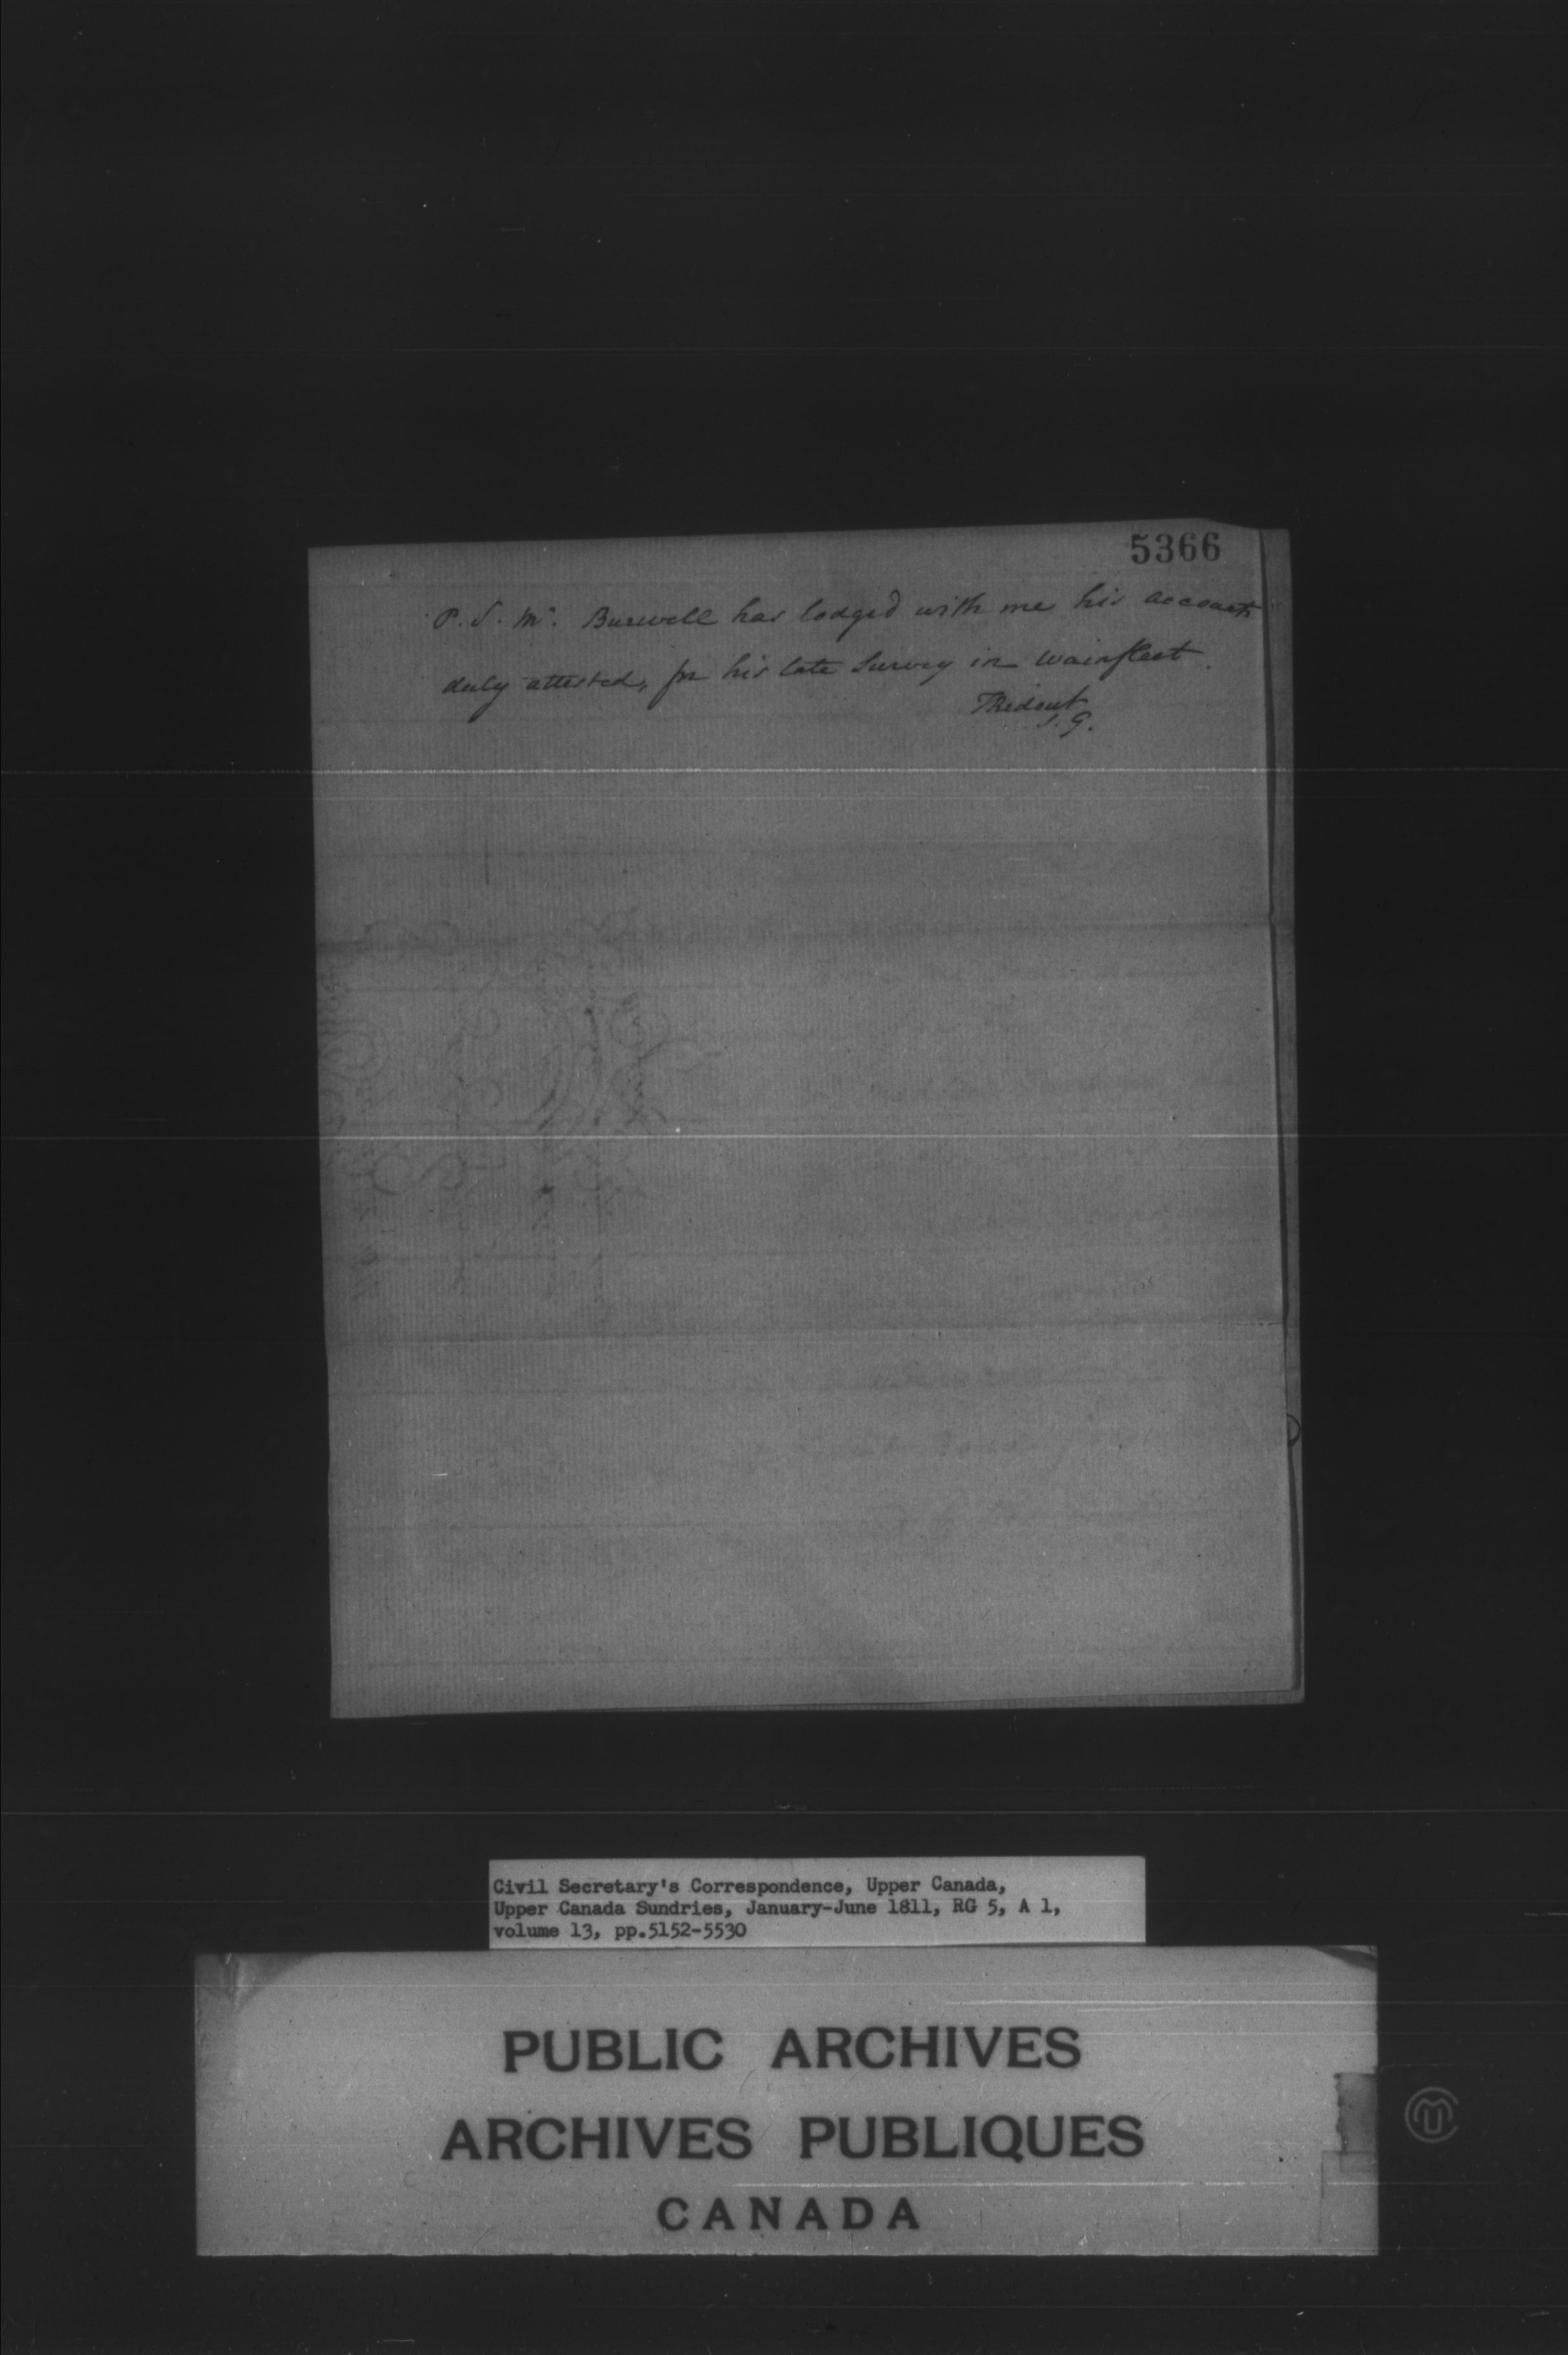 5366
P.S. Mr. Burwell has lodged with me his accounts
duly attested, for his late Survey in Wainfleet.
TRidout
S.G.
Civil Secretary's Correspondence, Upper Canada,
Upper Canada Sundries, January-June 1811, RG 5, A 1,
volume 13, pp.5152-5530
PUBLIC ARCHIVES
ARCHIVES PUBLIQUES
CANADA